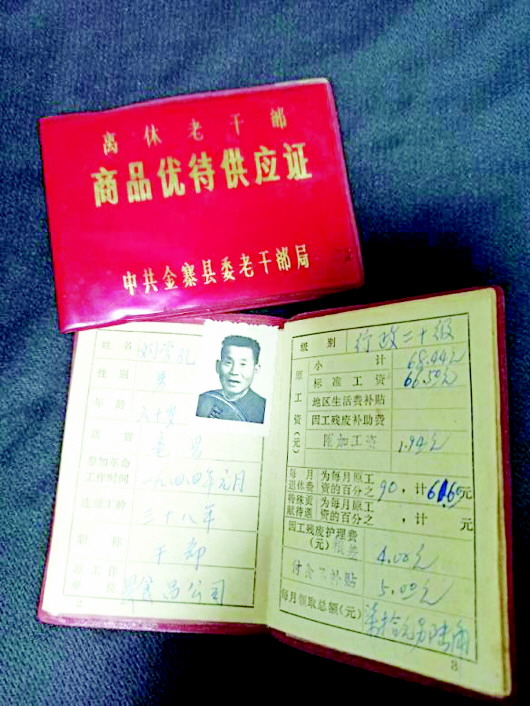 离休老干部
商品优待供应证
中共金寨县委老干部局
姓名
性别 男
年龄 六十岁
籍贯
参加革命
工作时间 一九四四年元月
连续工龄 三十八年
职称 干部
原工作
单位 公司
2
级别 行政二十级
原工资(元)
小计 68.44元
标准工资 66.50元
地区生活费补贴
因工残废补助费
附加工资 1.94元
每月
退休费 为每月原工
资的百分之90,计61.60元
特殊贡
献待遇 为每月原工
资的百分之 ,计 元
因工残废护理费
(元) 4.00元
付食品补贴 5.00元
每月领取总额(元) 柒拾元另陆角
3